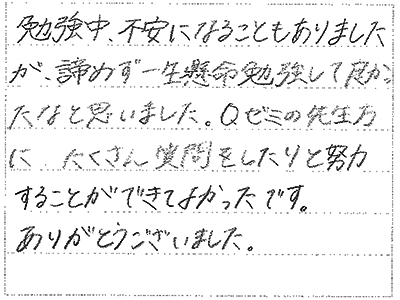 勉強中、不安になることもありました
が、諦めず一生懸命勉強して良かっ
たなと思いました。Qゼミの先生方
に、たくさん質問をしたりと努力
することができてよかったです。
ありがとうございました。